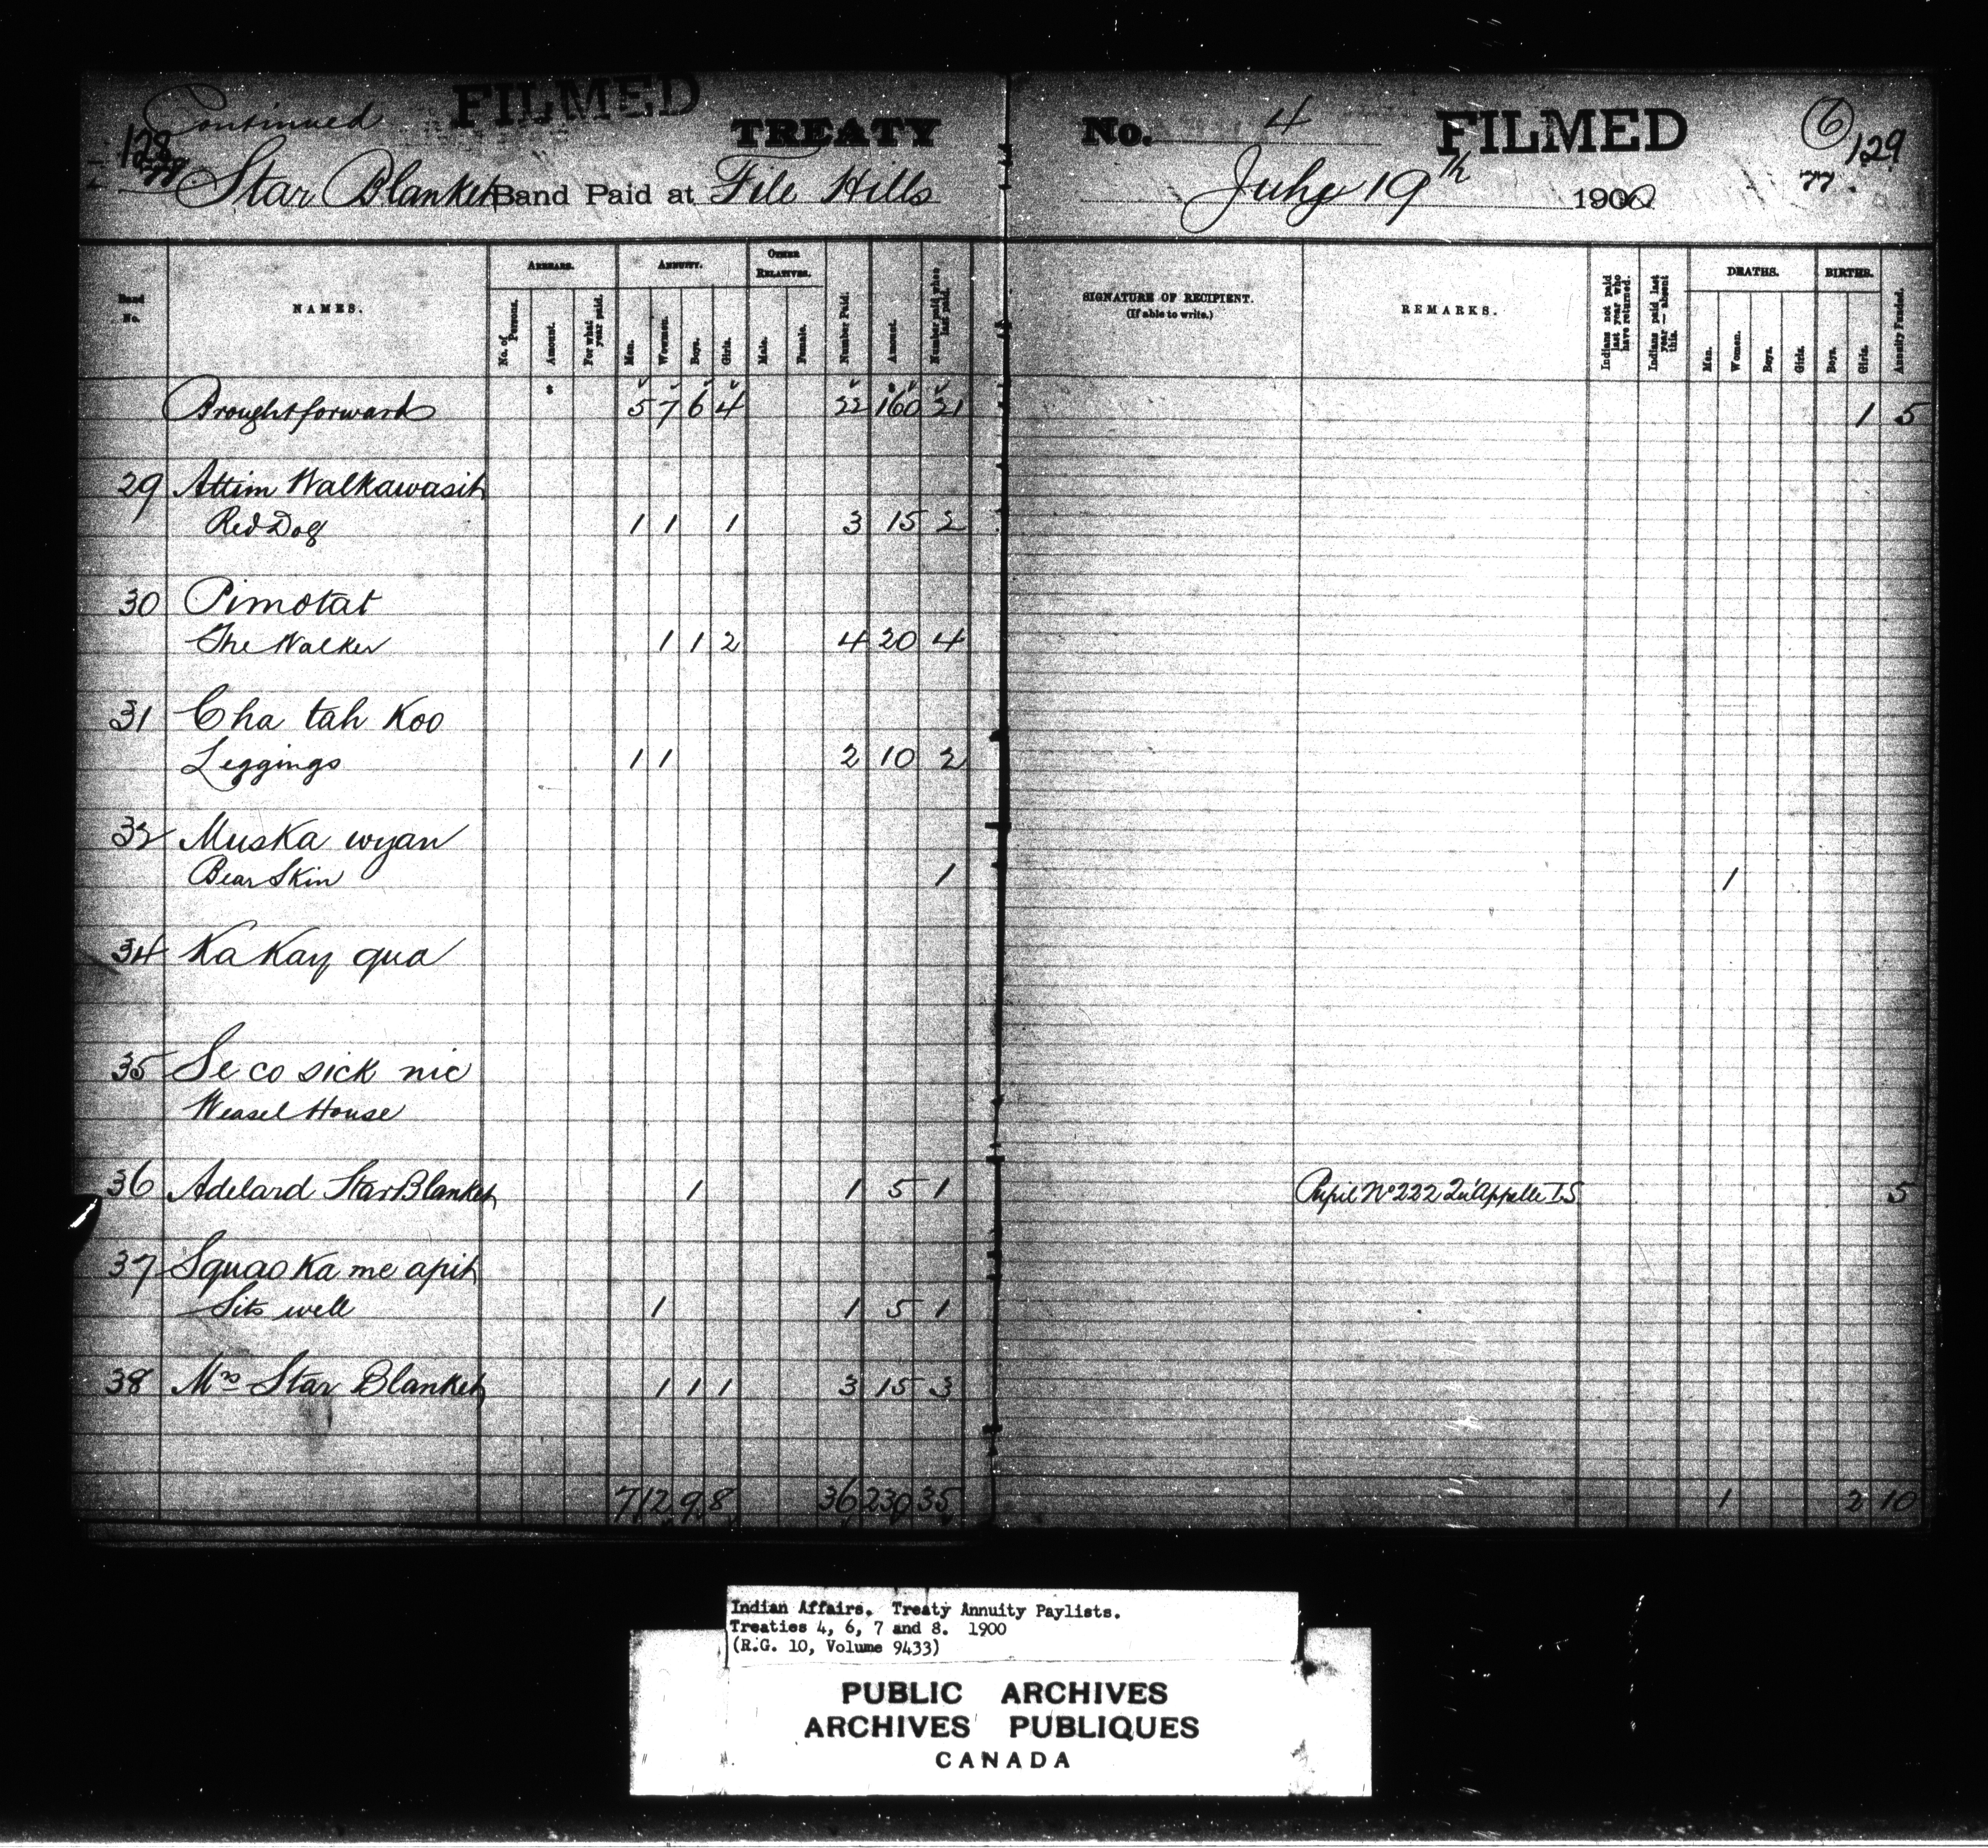 Continued FILMED TREATY No. 4 FILMED 6
128 129
Star Blanket Band Paid at File Hills July 19th 1900 77
Band No.
NAMES.
ARREARS.
No. of Persons.
Amount.
For what year paid.
ANNUITY.
Men.
Women.
Boys.
Girls.
OTHER RELATIVES.
Male.
Female.
Number Paid.
Amount.
Number paid when last paid.
SIGNATURE OF RECIPIENT.
(If able to write.)
REMARKS.
Indians not paid last year who have returned.
Indians paid last year — absent this.
DEATHS.
Men.
Women.
Boys.
Girls.
BIRTHS.
Boys.
Girls.
Annuity Funded.
Brought forward 5 7 6 4 22 160 21 1 5
29 Attim Walkawasit
Red Dog 1 1 1 3 15 2
30 Pimotat
The Walker 1 1 2 4 20 4
31 Cha tah Koo
Leggings 1 1 2 10 2
32 Muska wyan
Bear Skin 1 1
34 Ka Kay qua
35 Se co sick nic
Weasel House
36 Adelard Star Blanket 1 1 5 1 Pupil No 222 Qu'Appelle I.S 5
37 Squao Ka me apit
Sits well 1 1 5 1
38 Mrs Star Blanket 1 1 1 3 15 3
7 12 9 8 36 230 35 1 2 10
Indian Affairs. Treaty Annuity Paylists.
Treaties 4, 6, 7 and 8. 1900
(R.G. 10, Volume 9433)
PUBLIC ARCHIVES
ARCHIVES PUBLIQUES
CANADA